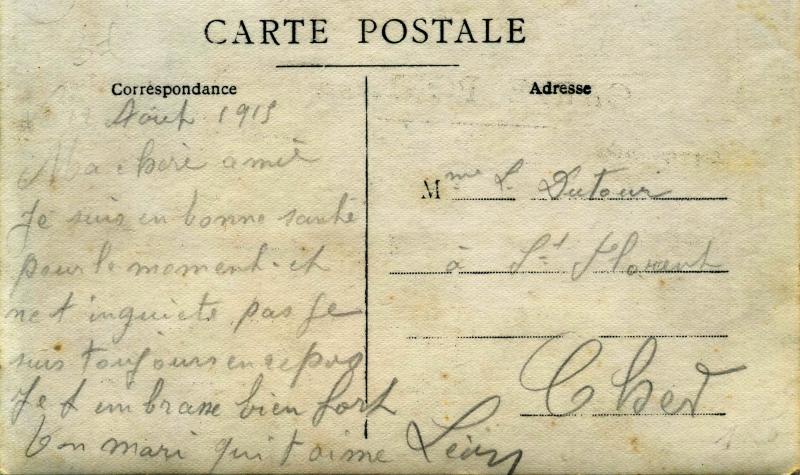 CARTE POSTALE
Correspondance
Août 1915
Ma cherè amie
Je suis en bonne santé
pour le moment et
ne t inquiete pas Je
suis toujours en repos
Je t embrasse bien fort
Ton mari qui t aime Léon
Adresse
Mme L. Dutour
à St Florent
Cher